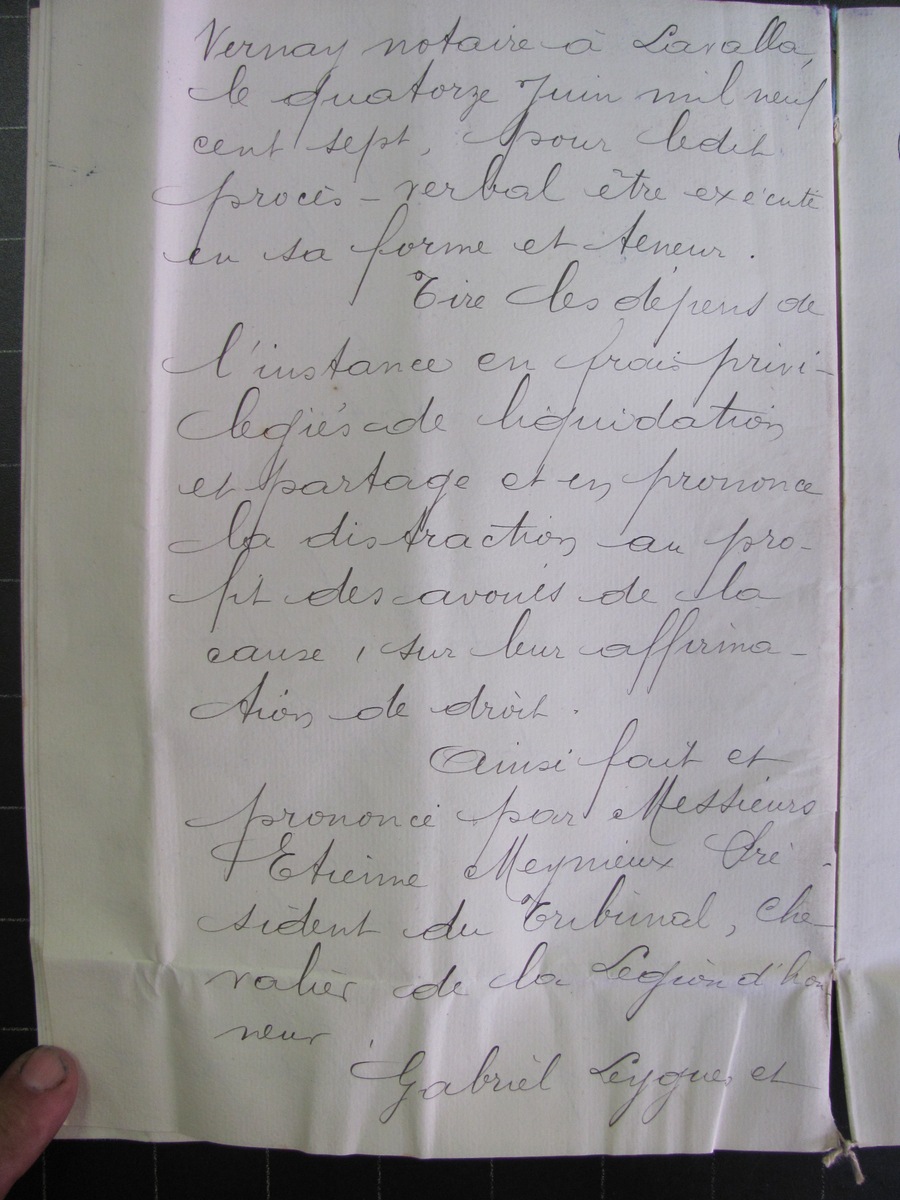 Vernay notaire à Lavalla,
le quatorze Juin mil neuf
cent sept, pour ledit
procès-verbal être exécuté
en sa forme et teneur.
Tire les dépens de
l'instance en frais privi-
legiés de liquidation
et partage et en prononce
la distraction au pro-
fit des avoués de la
cause, sur leur affirma-
tion de droit.
Ainsi fait et
prononcé par Messieurs
Etienne Meynieux Pré-
sident du Tribunal, che-
valier de la Legion d'hon-
neur,
Gabriel Leygues et